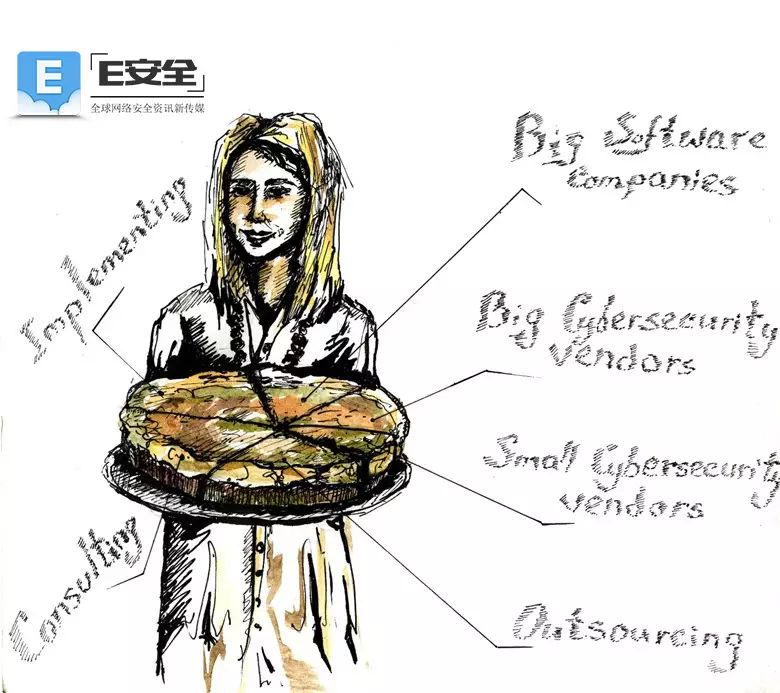 E
E安全
全球网络安全资讯新传媒
Big Software
Companies
Implementing
Big Cybersecurity
vendors
Small Cybersecurity
vendors
Consulting
Outsourcing